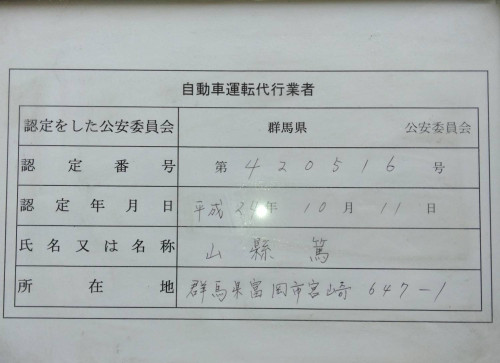 自動車運転代行業者
認定をした公安委員会 群馬県 公安委員会
認定番号 第 420516 号
認定年月日 平成24年 10月 11日
氏名又は名称 山縣 篤
所在地 群馬県富岡市宮崎 647-1